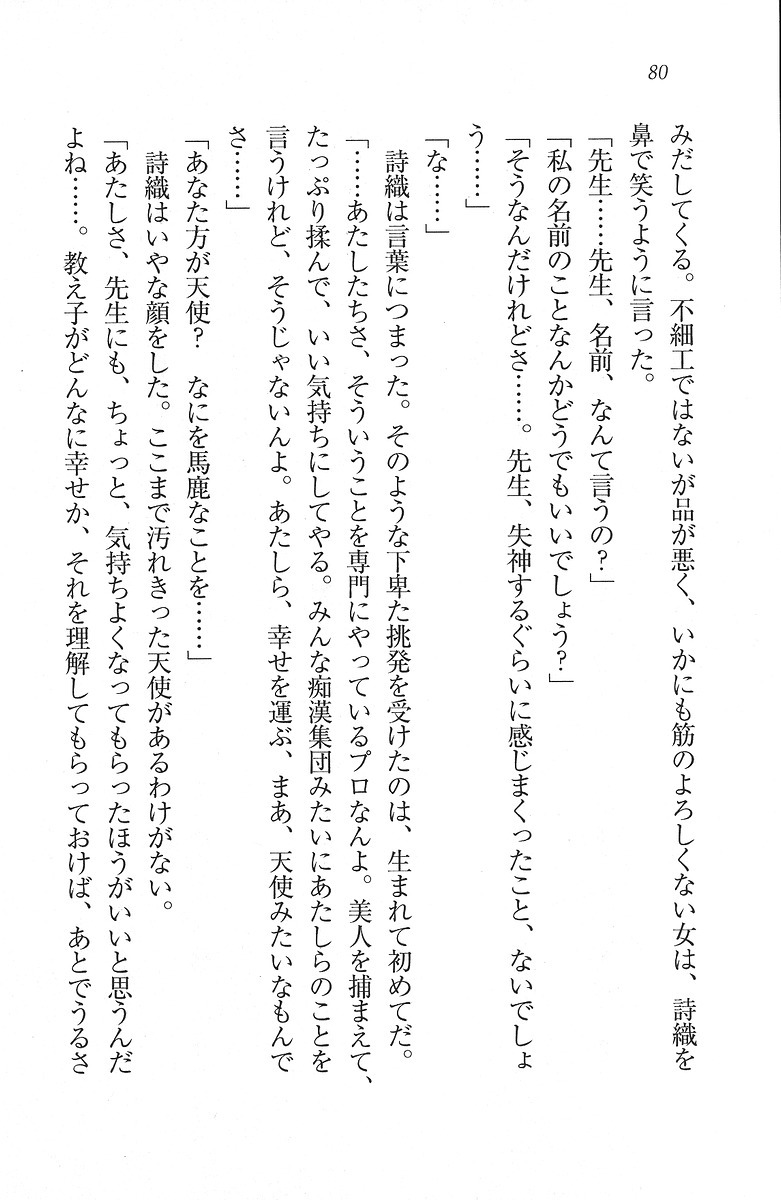 80
みだしてくる。不細工ではないが品が悪く、いかにも筋のよろしくない女は、詩織を
鼻で笑うように言った。
「先生……先生、名前、なんて言うの？」
「私の名前のことなんかどうでもいいでしょう？」
「そうなんだけれどさ……。先生、失神するぐらいに感じまくったこと、ないでしょ
う……」
「な……」
　詩織は言葉につまった。そのような下卑た挑発を受けたのは、生まれて初めてだ。
「……あたしたちさ、そういうことを専門にやっているプロなんよ。美人を捕まえて、
たっぷり揉んで、いい気持ちにしてやる。みんな痴漢集団みたいにあたしらのことを
言うけれど、そうじゃないんよ。あたしら、幸せを運ぶ、まあ、天使みたいなもんで
さ……」
「あなた方が天使？　なにを馬鹿なことを……」
　詩織はいやな顔をした。ここまで汚れきった天使があるわけがない。
「あたしさ、先生にも、ちょっと、気持ちよくなってもらったほうがいいと思うんだ
よね……。教え子がどんなに幸せか、それを理解してもらっておけば、あとでうるさ